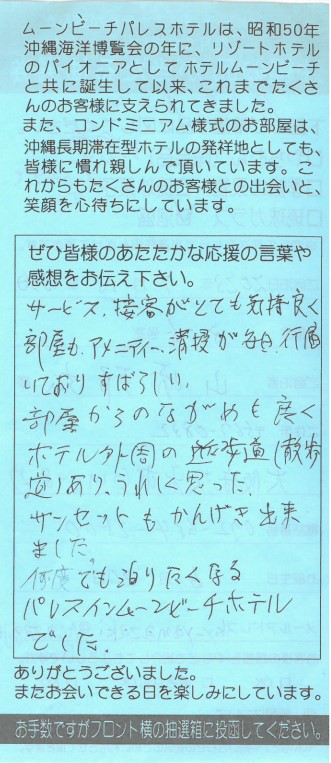 ムーンビーチパレスホテルは、昭和50年
沖縄海洋博覧会の年に、リゾートホテル
のパイオニアとしてホテルムーンビーチ
と共に誕生して以来、これまでたくさ
んのお客様に支えられてきました。
また、コンドミニアム様式のお部屋は、
沖縄長期滞在型ホテルの発祥地としても、
皆様に慣れ親しんで頂いています。こ
れからもたくさんのお客様との出会いと、
笑顔を心待ちにしています。
ぜひ皆様のあたたかな応援の言葉や
感想をお伝え下さい。
サービス、接客がとても気持良く
部屋も、アメニティー、清掃が毎日、行届
いており すばらしい。
部屋からのながめも良く
ホテル外周の 遊歩道(散歩
道)あり、うれしく思った。
サンセットもかんげき出来
ました。
何度でも泊りたくなる
パレスインムーンビーチホテル
でした。
ありがとうございました。
またお会いできる日を楽しみにしています。
お手数ですがフロント横の抽選箱に投函してください。